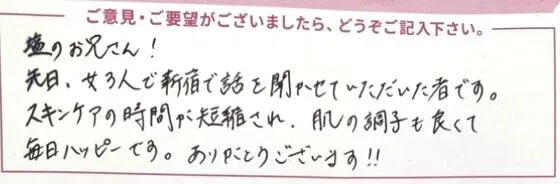 ご意見・ご要望がございましたら、どうぞご記入下さい。
塩のお兄さん！
先日、女3人で新宿で話を聞かせていただいた者です。
スキンケアの時間が短縮され、肌の調子も良くて
毎日ハッピーです。ありがとうございます!!